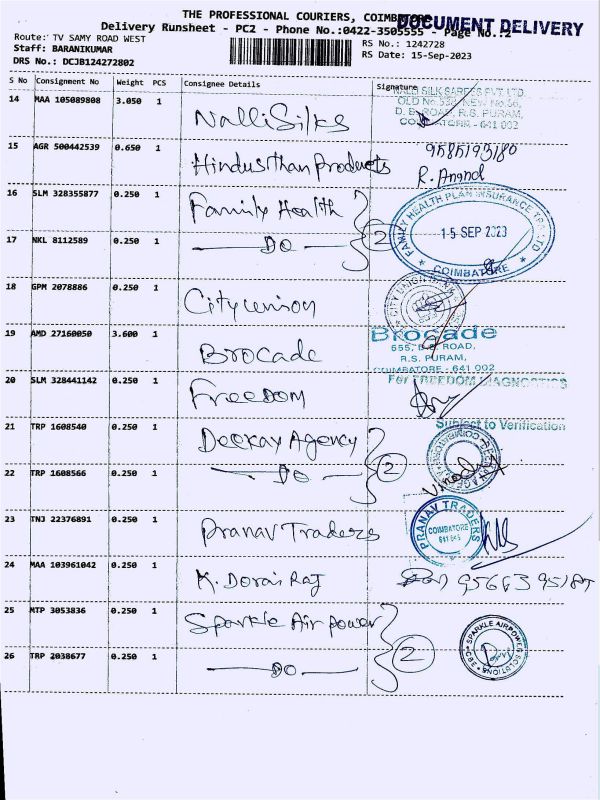 THE PROFESSIONAL COURIERS, COIMBATORE
DOCUMENT DELIVERY
Delivery Runsheet - PC2 - Phone No.:0422-3505555 - Page No.:2
Route: TV SAMY ROAD WEST
RS No.: 1242728
Staff: BARANIKUMAR
RS Date: 15-Sep-2023
DRS No.: DCJB124272802
S No Consignment No Weight PCS Consignee Details Signature
14 MAA 105089808 3.050 1 Nalli Silks
NALLI SILK SAREES PVT LTD.
OLD No.538, NEW No.56,
D. B. ROAD, R.S. PURAM,
COIMBATORE - 641 002
15 AGR 500442539 0.650 1 Hindusthan Products
9585195180
R. Anand
16 SLM 328355877 0.250 1 Family Health
17 NKL 8112589 0.250 1 DO 2
FAMILY HEALTH PLAN INSURANCE TPA LTD
15 SEP 2023
COIMBATORE
18 GPM 2078886 0.250 1 City union
CITY UNION BANK
19 AMD 27160050 3.600 1 Brocade
Brocade
655, D.B. ROAD,
R.S. PURAM,
COIMBATORE - 641 002
20 SLM 328441142 0.250 1 Freedom
For FREEDOM DIAGNOSTICS
21 TRP 1608540 0.250 1 Deekay Agency
Subject to Verification
22 TRP 1608566 0.250 1 DO 2
23 TNJ 22376891 0.250 1 Pranav Traders
PRANAV TRADERS
COIMBATORE
24 MAA 103961042 0.250 1 K. Dorai Raj
25 MTP 3053836 0.250 1 Sparkle Air power
26 TRP 2038677 0.250 1 DO 2
SPARKLE AIRPOWER SOLUTIONS
CBE